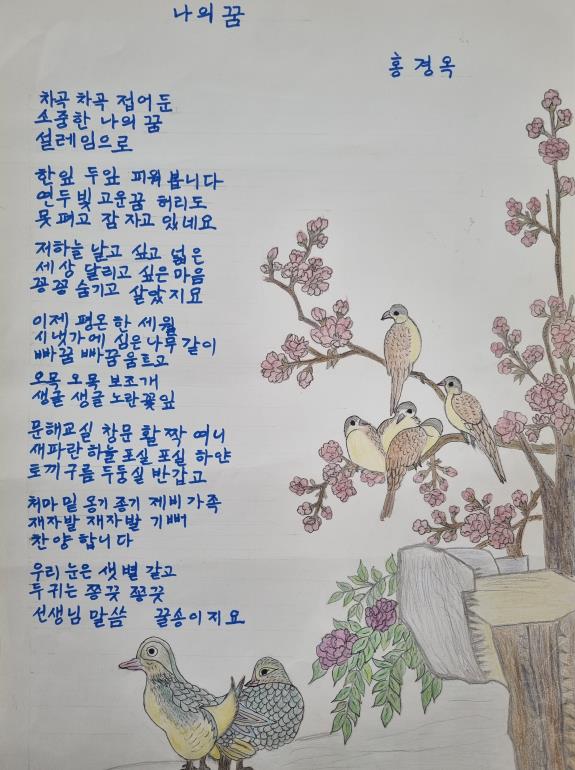 나의 꿈
홍경옥
차곡 차곡 접어 둔
소중한 나의 꿈
설레임으로
한잎 두잎 피워 봅니다
연두빛 고운꿈 허리도
못펴고 잠자고 있네요
저하늘 날고 싶고 넓은
세상 달리고 싶은 마음
꽁꽁 숨기고 살았지요
이제 평온한 세월
시냇가에 심은 나무 같이
빠꿈 빠꿈 움트고
오목 오목 보조개
생글 생글 노란꽃잎
문해교실 창문 활짝 여니
새파란 하늘 포실 포실 하얀
토끼구름 두둥실 반갑고
처마 밑 옹기 종기 제비 가족
재자발 재자발 기뻐
찬양 합니다
우리 눈은 샛별 같고
두 귀는 쫑긋 쫑긋
선생님 말씀 꿀송이지요